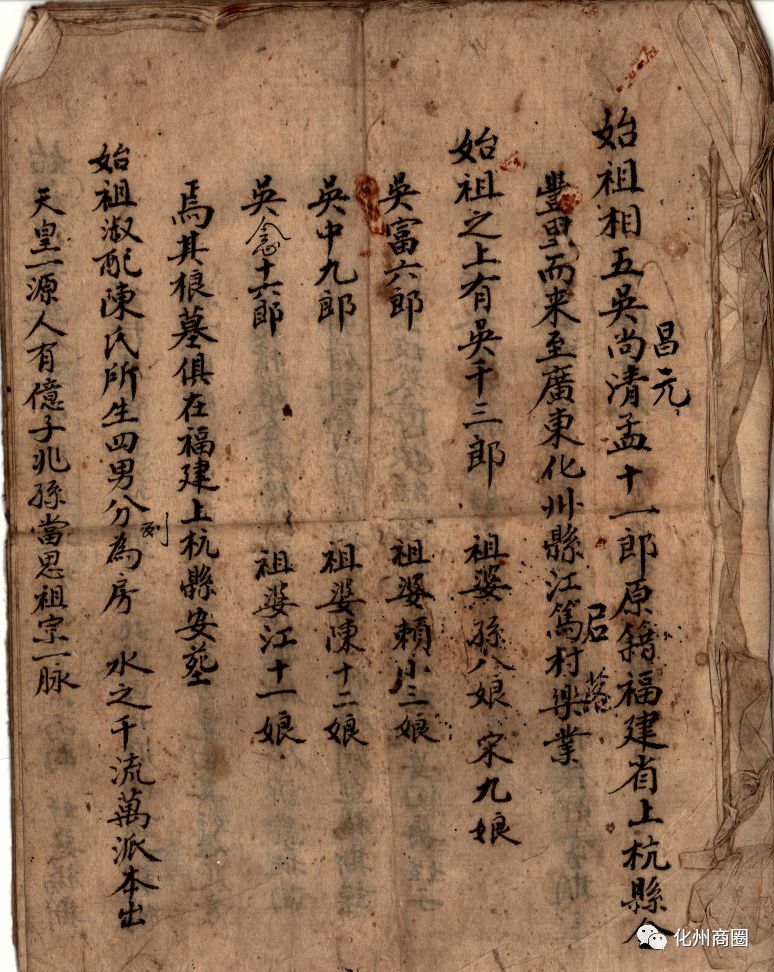 始祖相五吳尚清孟十一郎原籍福建省上杭縣人
昌元
豐里而来至廣東化州縣江篤村樂業
居落
始祖之上有吳千三郎 祖婆孫八娘 宋九娘
吳富六郎 祖婆賴小三娘
吳中九郎 祖婆陳十二娘
吳念十六郎 祖婆江十一娘
焉其根墓俱在福建上杭縣安葬
始祖淑配陳氏所生四男分為房 水之千流萬派本出
列
天皇一源人有億子兆孫當思祖宗一脉
化州商圈